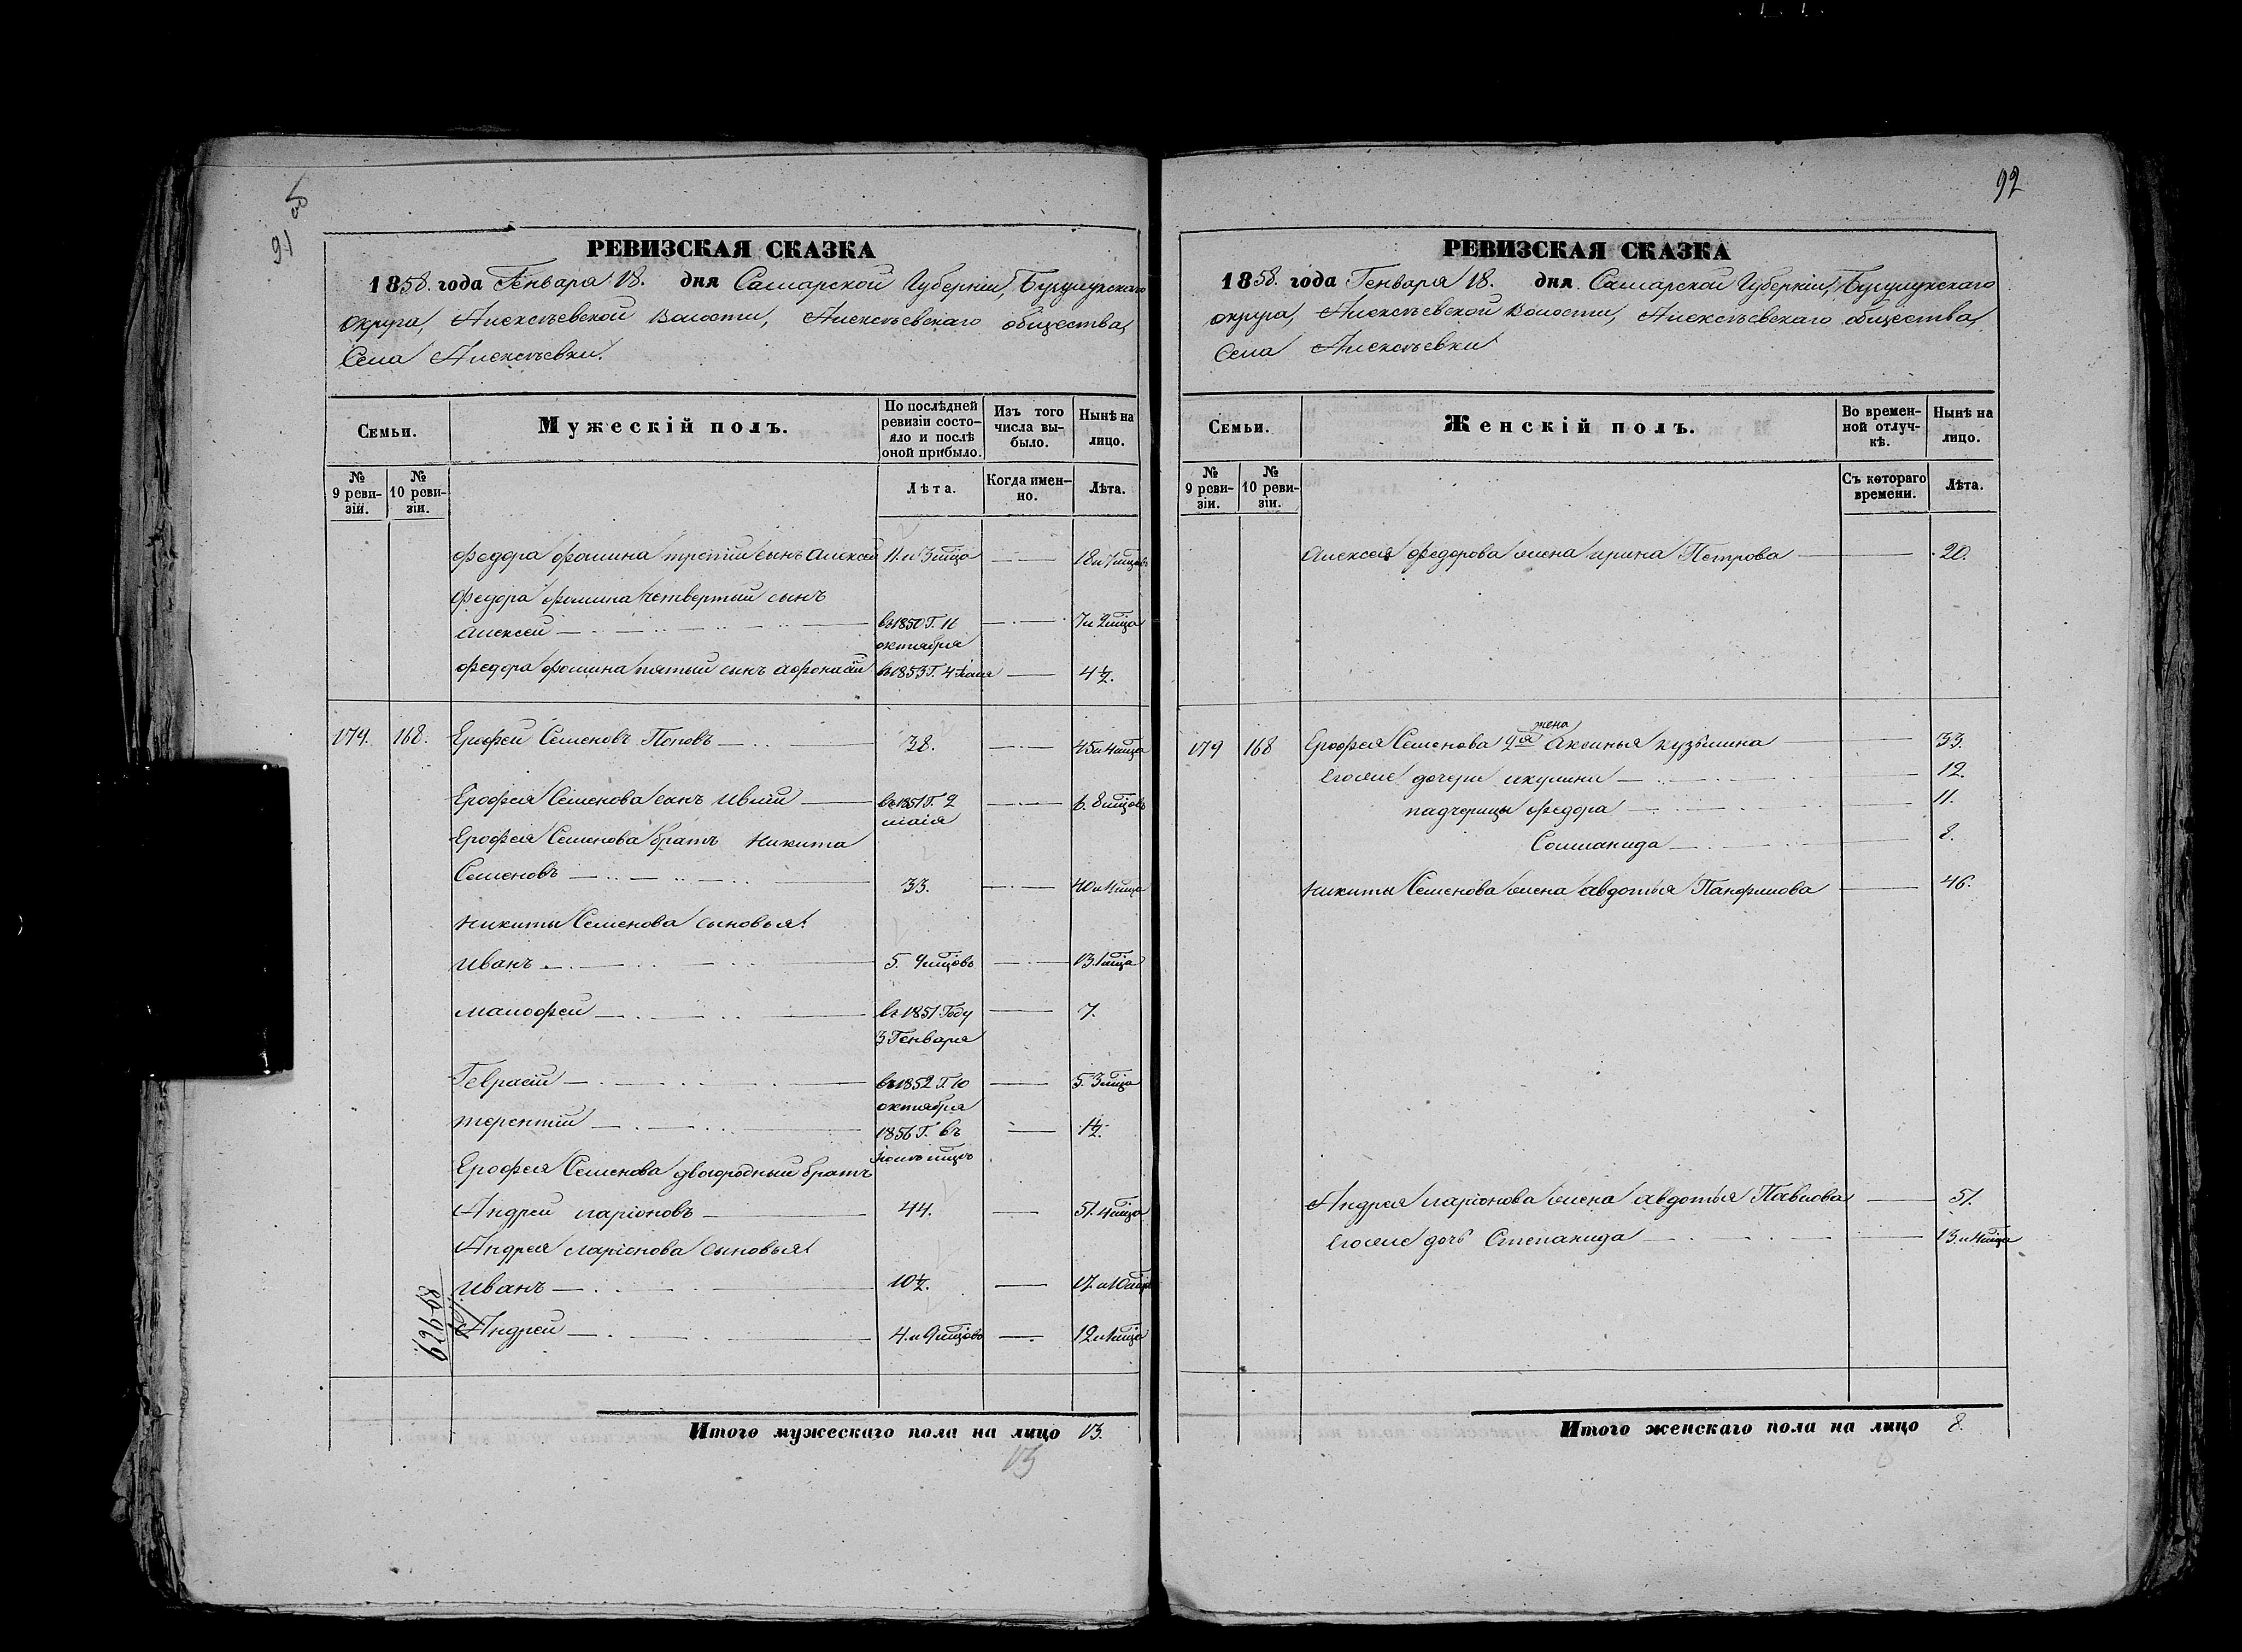 91
РЕВИЗСКАЯ СКАЗКА
1858. года Генваря 18. дня Самарской Губерніи, Бузулукскаго
округа, Алексѣевской Волости, Алексѣевскаго общества,
Села Алексѣевки.
Семьи.
Мужескій полъ.
По послѣдней ревизіи состояло и послѣ оной прибыло.
Изъ того числа выбыло.
Нынѣ на лицо.
№ 9 ревизіи.
№ 10 ревизіи.
Лѣта.
Когда именно.
Лѣта.
Федора Фомина третій сынъ Алексей 11 и 3 мца 18 и 7 мцовъ
Федора Фомина четвертый сынъ
Алексей въ 1850 Г. 16 октября 7 и 2 мца
Федора Фомина пятый сынъ Афонасій въ 1853 Г. 4 4½.
174. 168. Ерофей Семеновъ Поповъ 38. 45 и 4 мца
Ерофея Семенова сынъ въ 1851 Г. 2 маія 6. 8 мцовъ
Ерофея Семенова братъ Никита
Семеновъ 33. 40 и 4 мца
Никиты Семенова сыновья:
Иванъ 5. 9 мцовъ 13. 1 мца
въ 1851 Году 3 Генваря 7.
въ 1852 Г. 10 октября 5. 3 мца
Терентій 1856 Г. въ 1½.
Ерофея Семенова двоюродный братъ
Андрей Ларіоновъ 44. 51. 4 мца
Андрея Ларіонова сыновья:
Иванъ 10½. 17. и 10 мцовъ
Андрей 4. и 9 мцовъ 12 и 1 мца
Итого мужескаго пола на лицо 13.
13
92
РЕВИЗСКАЯ СКАЗКА
1858. года Генваря 18. дня Самарской Губерніи, Бузулукскаго
округа, Алексѣевской Волости, Алексѣевскаго общества,
Села Алексѣевки
Семьи.
Женскій полъ.
Во временной отлучкѣ.
Нынѣ на лицо.
№ 9 ревизіи.
№ 10 ревизіи.
Съ котораго времени.
Лѣта.
Алексея Федорова жена Ирина Петрова 20.
179 168 Ерофея Семенова 2я жена Аксинья Кузьмина 33.
Егоже дочери Акулина 12.
падчерицы Федора 11.
8.
Никиты Семенова жена Авдотья Панфилова 46.
Андрея Ларіонова жена Авдотья Павлова 51.
Егоже дочь Степанида 13. и 4 мца
Итого женскаго пола на лицо 8.
8